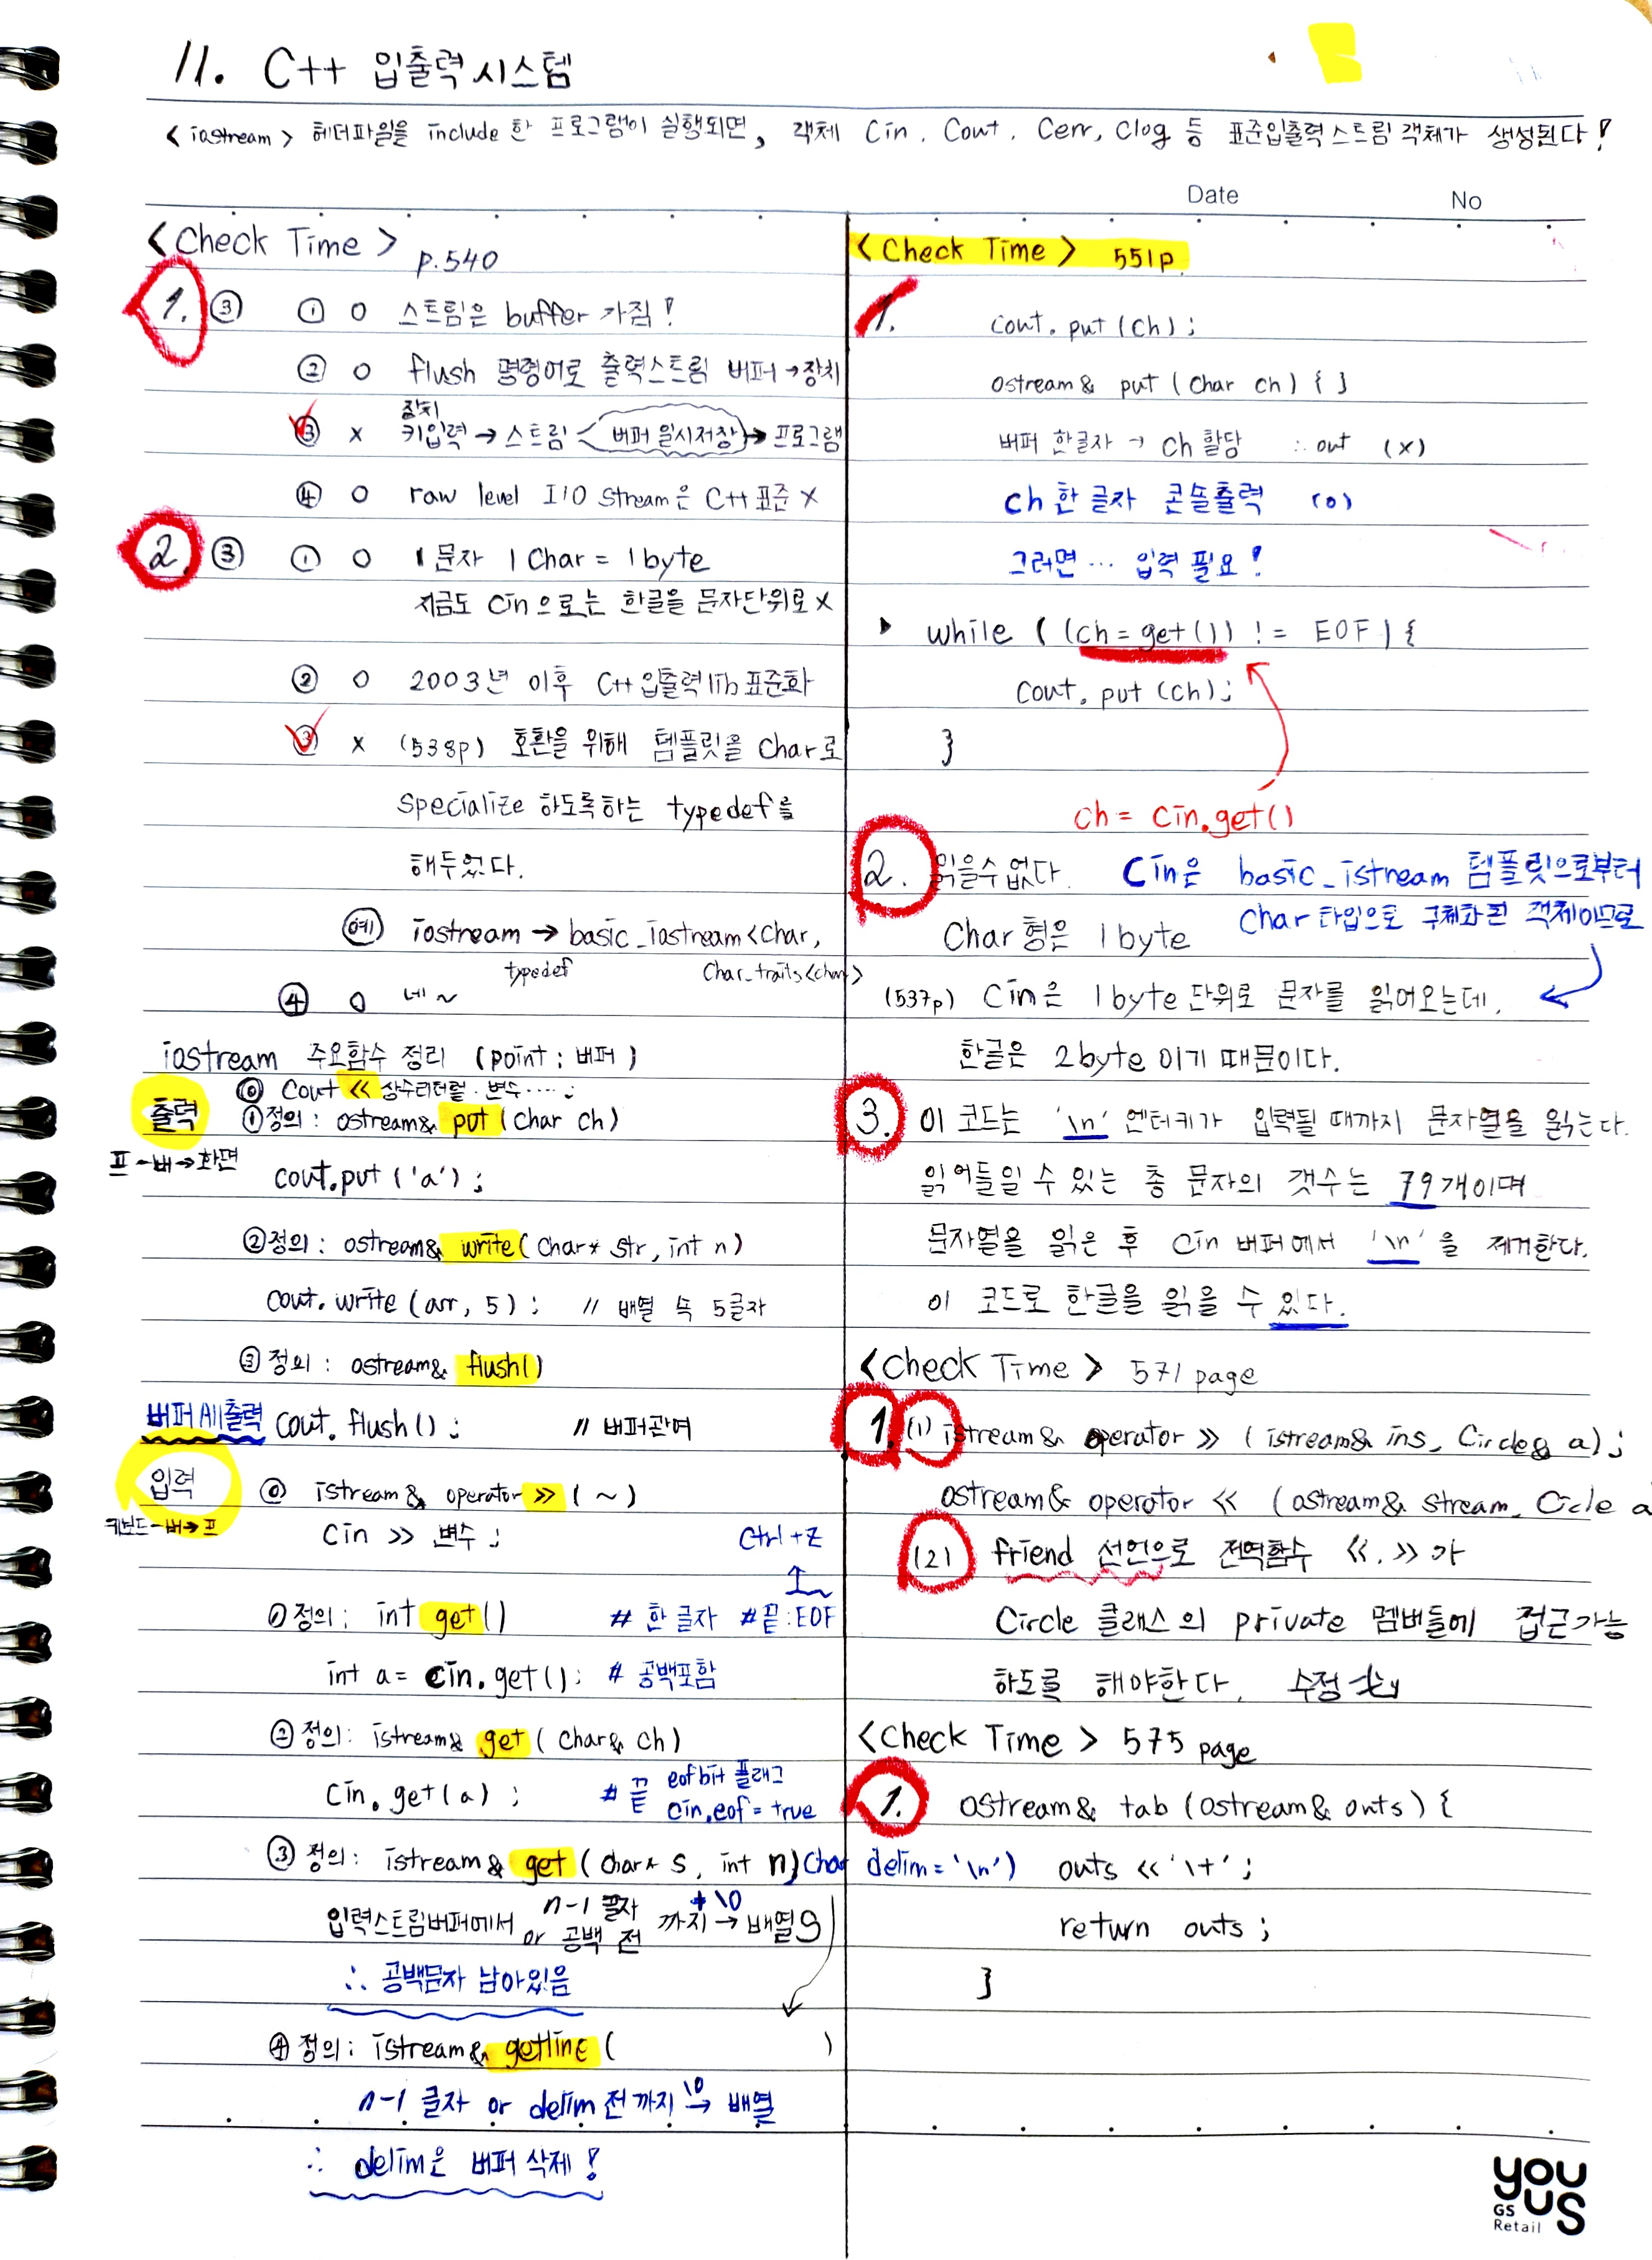 11. C++ 입출력 시스템
<iostream> 헤더파일을 include 한 프로그램이 실행되면, 객체 Cin, Cout, Cerr, Clog 등 표준입출력 스트림 객체가 생성된다!
Date No
<Check Time> p.540
1. ③ ① O 스트림은 buffer 가짐!
② O flush 명령어로 출력스트림 버퍼→장치
장치
③ X 키입력 → 스트림 버퍼 일시저장 → 프로그램
④ O raw level I/O Stream은 C++ 표준 X
2. ③ ① O 1문자 1 Char = 1 byte
지금도 Cin으로는 한글을 문자단위로 X
② O 2003년 이후 C++ 입출력 lib 표준화
③ X (538p) 호환을 위해 템플릿을 Char로
Specialize 하도록하는 typedef를
해두었다.
예) iostream → basic_iostream<Char,
typedef Char_traits<char>
④ O 네~
iostream 주요함수 정리 (point : 버퍼)
⓪ Cout << 상수리터럴. 변수 .... ;
출력 ①정의 : ostream& put (Char ch)
프-버→화면
cout.put ('a');
②정의 : ostream& write( Char* Str, int n)
cout. write (arr, 5) ; // 배열 속 5글자
③정의 : ostream& flush()
버퍼 All 출력 cout. flush() ; // 버퍼관여
입력 ⓪ istream& operator >> ( ~ )
키보드-버→프
Cin >> 변수 ; Ctrl+Z
①정의 : int get() # 한 글자 # 끝 : EOF
int a = cin.get(); # 공백포함
②정의 : istream& get ( Char& ch)
Cin. get(a) ; # 끝 eofbit 플래그
cin.eof = true
③ 정의 : istream& get ( char* S, int n) Char delim = '\n')
입력스트림버퍼에서 n-1 글자 or 공백 전 까지 + \0 → 배열S
∴ 공백문자 남아있음
④정의 : istream& getline ( )
n-1 글자 or delim 전까지 \0 → 배열
∴ delim은 버퍼 삭제!
<Check Time> 551p.
1. cout. put (ch) ;
ostream& put (char ch) { }
버퍼 한글자 → ch 할당 ∴ out (x)
ch 한 글자 콘솔출력 (o)
그러면... 입력 필요!
while ( (ch = get()) != EOF ) {
cout. put (ch);
}
ch = cin.get()
2. 읽을수 없다. Cin은 basic_istream 템플릿으로부터
Char 타입으로 구체화된 객체이므로
Char 형은 1 byte
(537p) Cin은 1 byte 단위로 문자를 읽어오는데,
한글은 2byte 이기 때문이다.
3. 이 코드는 '\n' 엔터키가 입력될 때까지 문자열을 읽는다.
읽어들일 수 있는 총 문자의 갯수는 79개이며
문자열을 읽은 후 Cin 버퍼에서 '\n' 을 제거한다.
이 코드로 한글을 읽을 수 있다.
<Check Time> 571 page
1. (1) istream& operator >> (istream& ins, Circle& a) ;
ostream& operator << (ostream& stream, Cicle a
(2) friend 선언으로 전역함수 <<, >> 가
Circle 클래스의 private 멤버들에 접근가능
하도록 해야한다. 수정
<Check Time> 575 page
1. ostream& tab (ostream& outs) {
outs << '\t' ;
return outs ;
}
you us
GS Retail